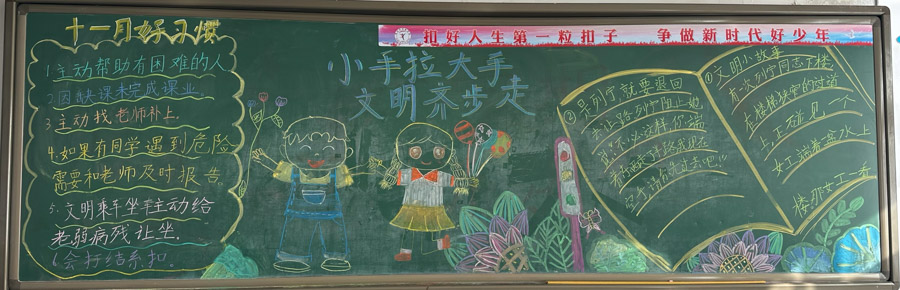 十一月好习惯
1.主动帮助有困难的人
2.因缺课未完成课业
3.主动找老师补上.
4.如果有同学遇到危险
需要和老师及时报告
5.文明乘车坐车主动给
老弱病残让坐.
6.会打结系扣.
扣好人生第一粒扣子 争做新时代好少年
小手拉大手
文明齐步走
②是列宁就要退回
去让路列宁阻止她
说:不必这样你端
着
吧!"
①文明小故事
有一次列宁同志下楼
在楼梯狭窄的过道
上,正碰见一个
女工端着盆水上
楼那女工一看